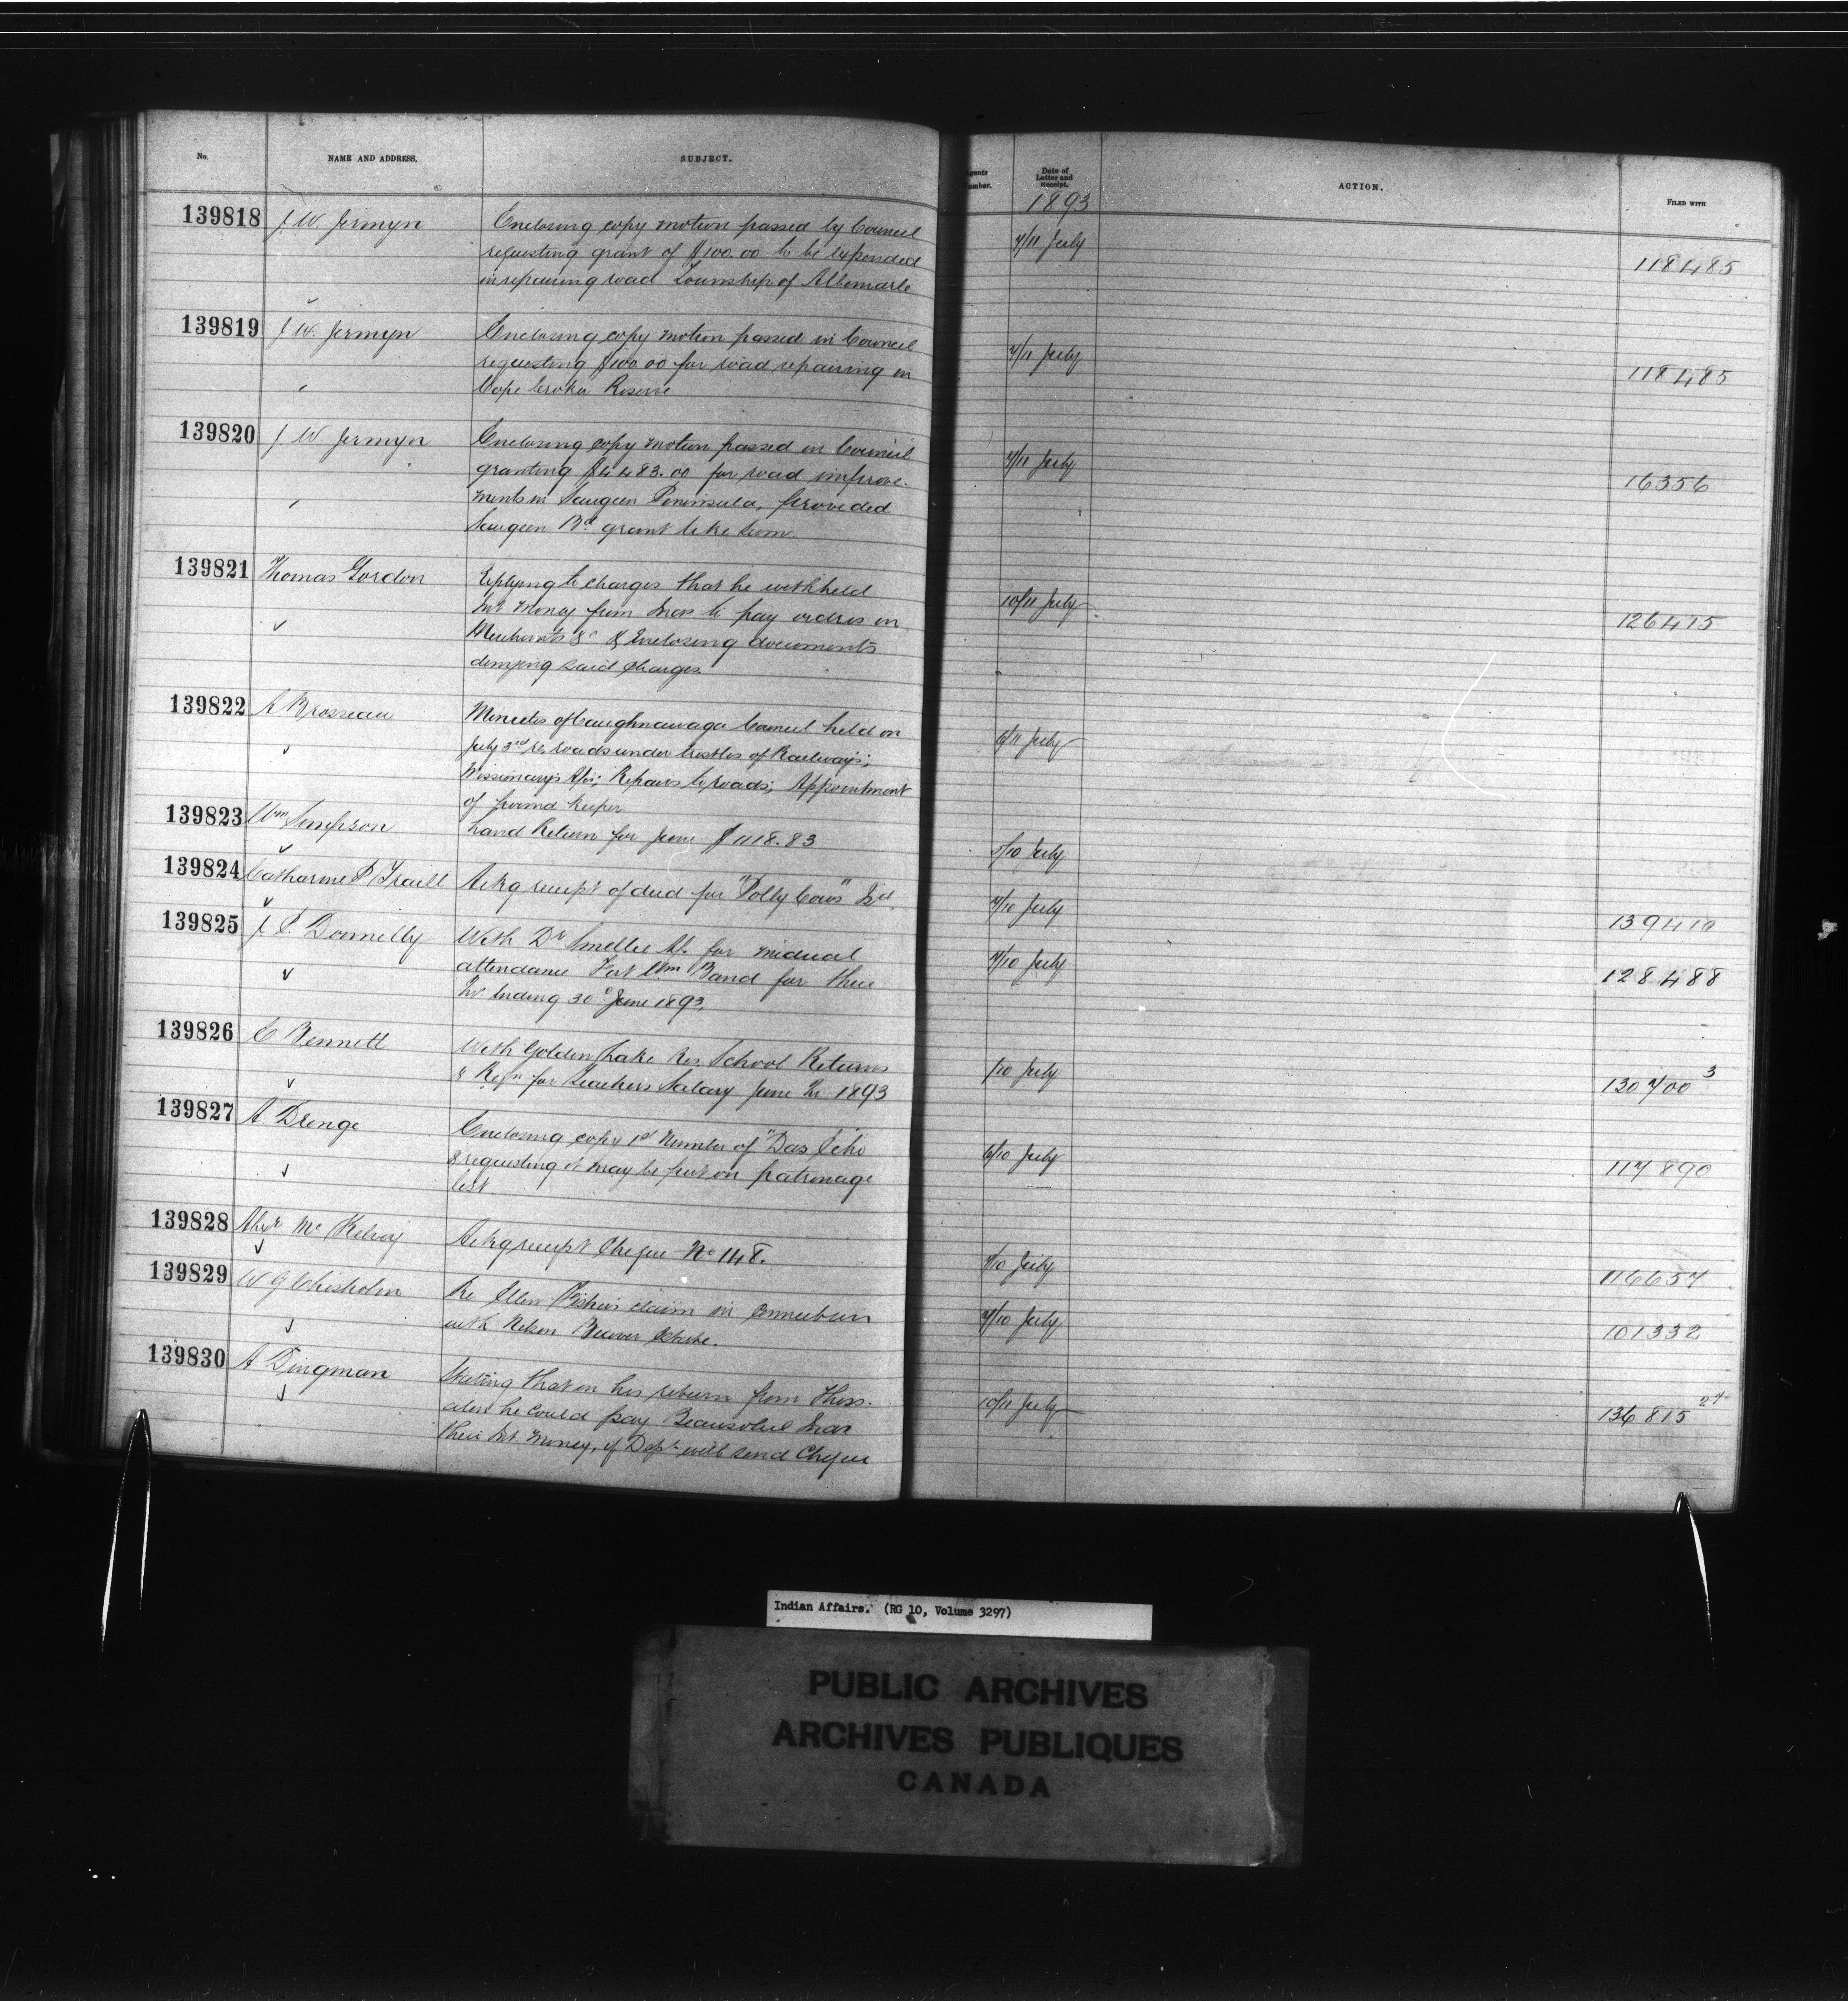 No. NAME AND ADDRESS. SUBJECT.
gents
umber.
Date of
Letter and
Receipt.
ACTION. FILED WITH
1893
139818 J. W. Jermyn Enclosing copy motion passed by Council
requesting grant of $100.00 to be expended
in repairing road Township of Albemarle
7/11 July 118485
139819 J. W. Jermyn Enclosing copy motion passed in Council
requesting $100.00 for road repairing on
Cape Croker Reserve
7/11 July 118485
139820 J. W. Jermyn Enclosing copy motion passed in Council
granting $4483.00 for road improve-
ments in Saugeen Peninsula, provided
Saugeen Bd grant like sum
7/11 July 16356
139821 Thomas Gordon Replying to charges that he withheld
Int money from Inds to pay orders on
Merchants &c & Enclosing documents
denying said charges.
10/11 July 126415
139822 A Brosseau Minutes of Caughnawaga Council held on
July 3rd re, roads under trestles of Railways;
Missionarys Afs; Repairs to roads; Appointment
of pound keeper
6/11 July
139823 Wm Simpson Land Return for June $1118.83
8/10 July
139824 Catharine P Traill Ackg receipt of deed for "Polly Cows" Isd.
7/10 July 139410
139825 J. P. Donnelly With Dr Smellie A/c. for medical
attendance Fort Wm Band for three
Mo. Ending 30th June 1893.
7/10 July 128488
139826 E Bennett With Golden Lake Res. School Returns
& Reqn for Teachers Salary June Qr 1893
/10 July 130700 3
139827 A Drenge Enclosing copy 1st Number of "Das Echo
& requesting it may be put on patronage
list
6/10 July 117890
139828 Alexr McKelvey Ackg receipt Cheque No 148.
7/10 July 116657
139829 W G Chisholm Re Ellen Fishers claim in connection
with Nelson Beaver Estate.
7/10 July 101332
139830 A Dingman Stating that on his return from Thess-
alon he could pay Beausoliel Inds
their Int. Money, if Dept will send Cheque
10/11 July 136815 27
Indian Affairs. (RG 10, Volume 3297)
PUBLIC ARCHIVES
ARCHIVES PUBLIQUES
CANADA